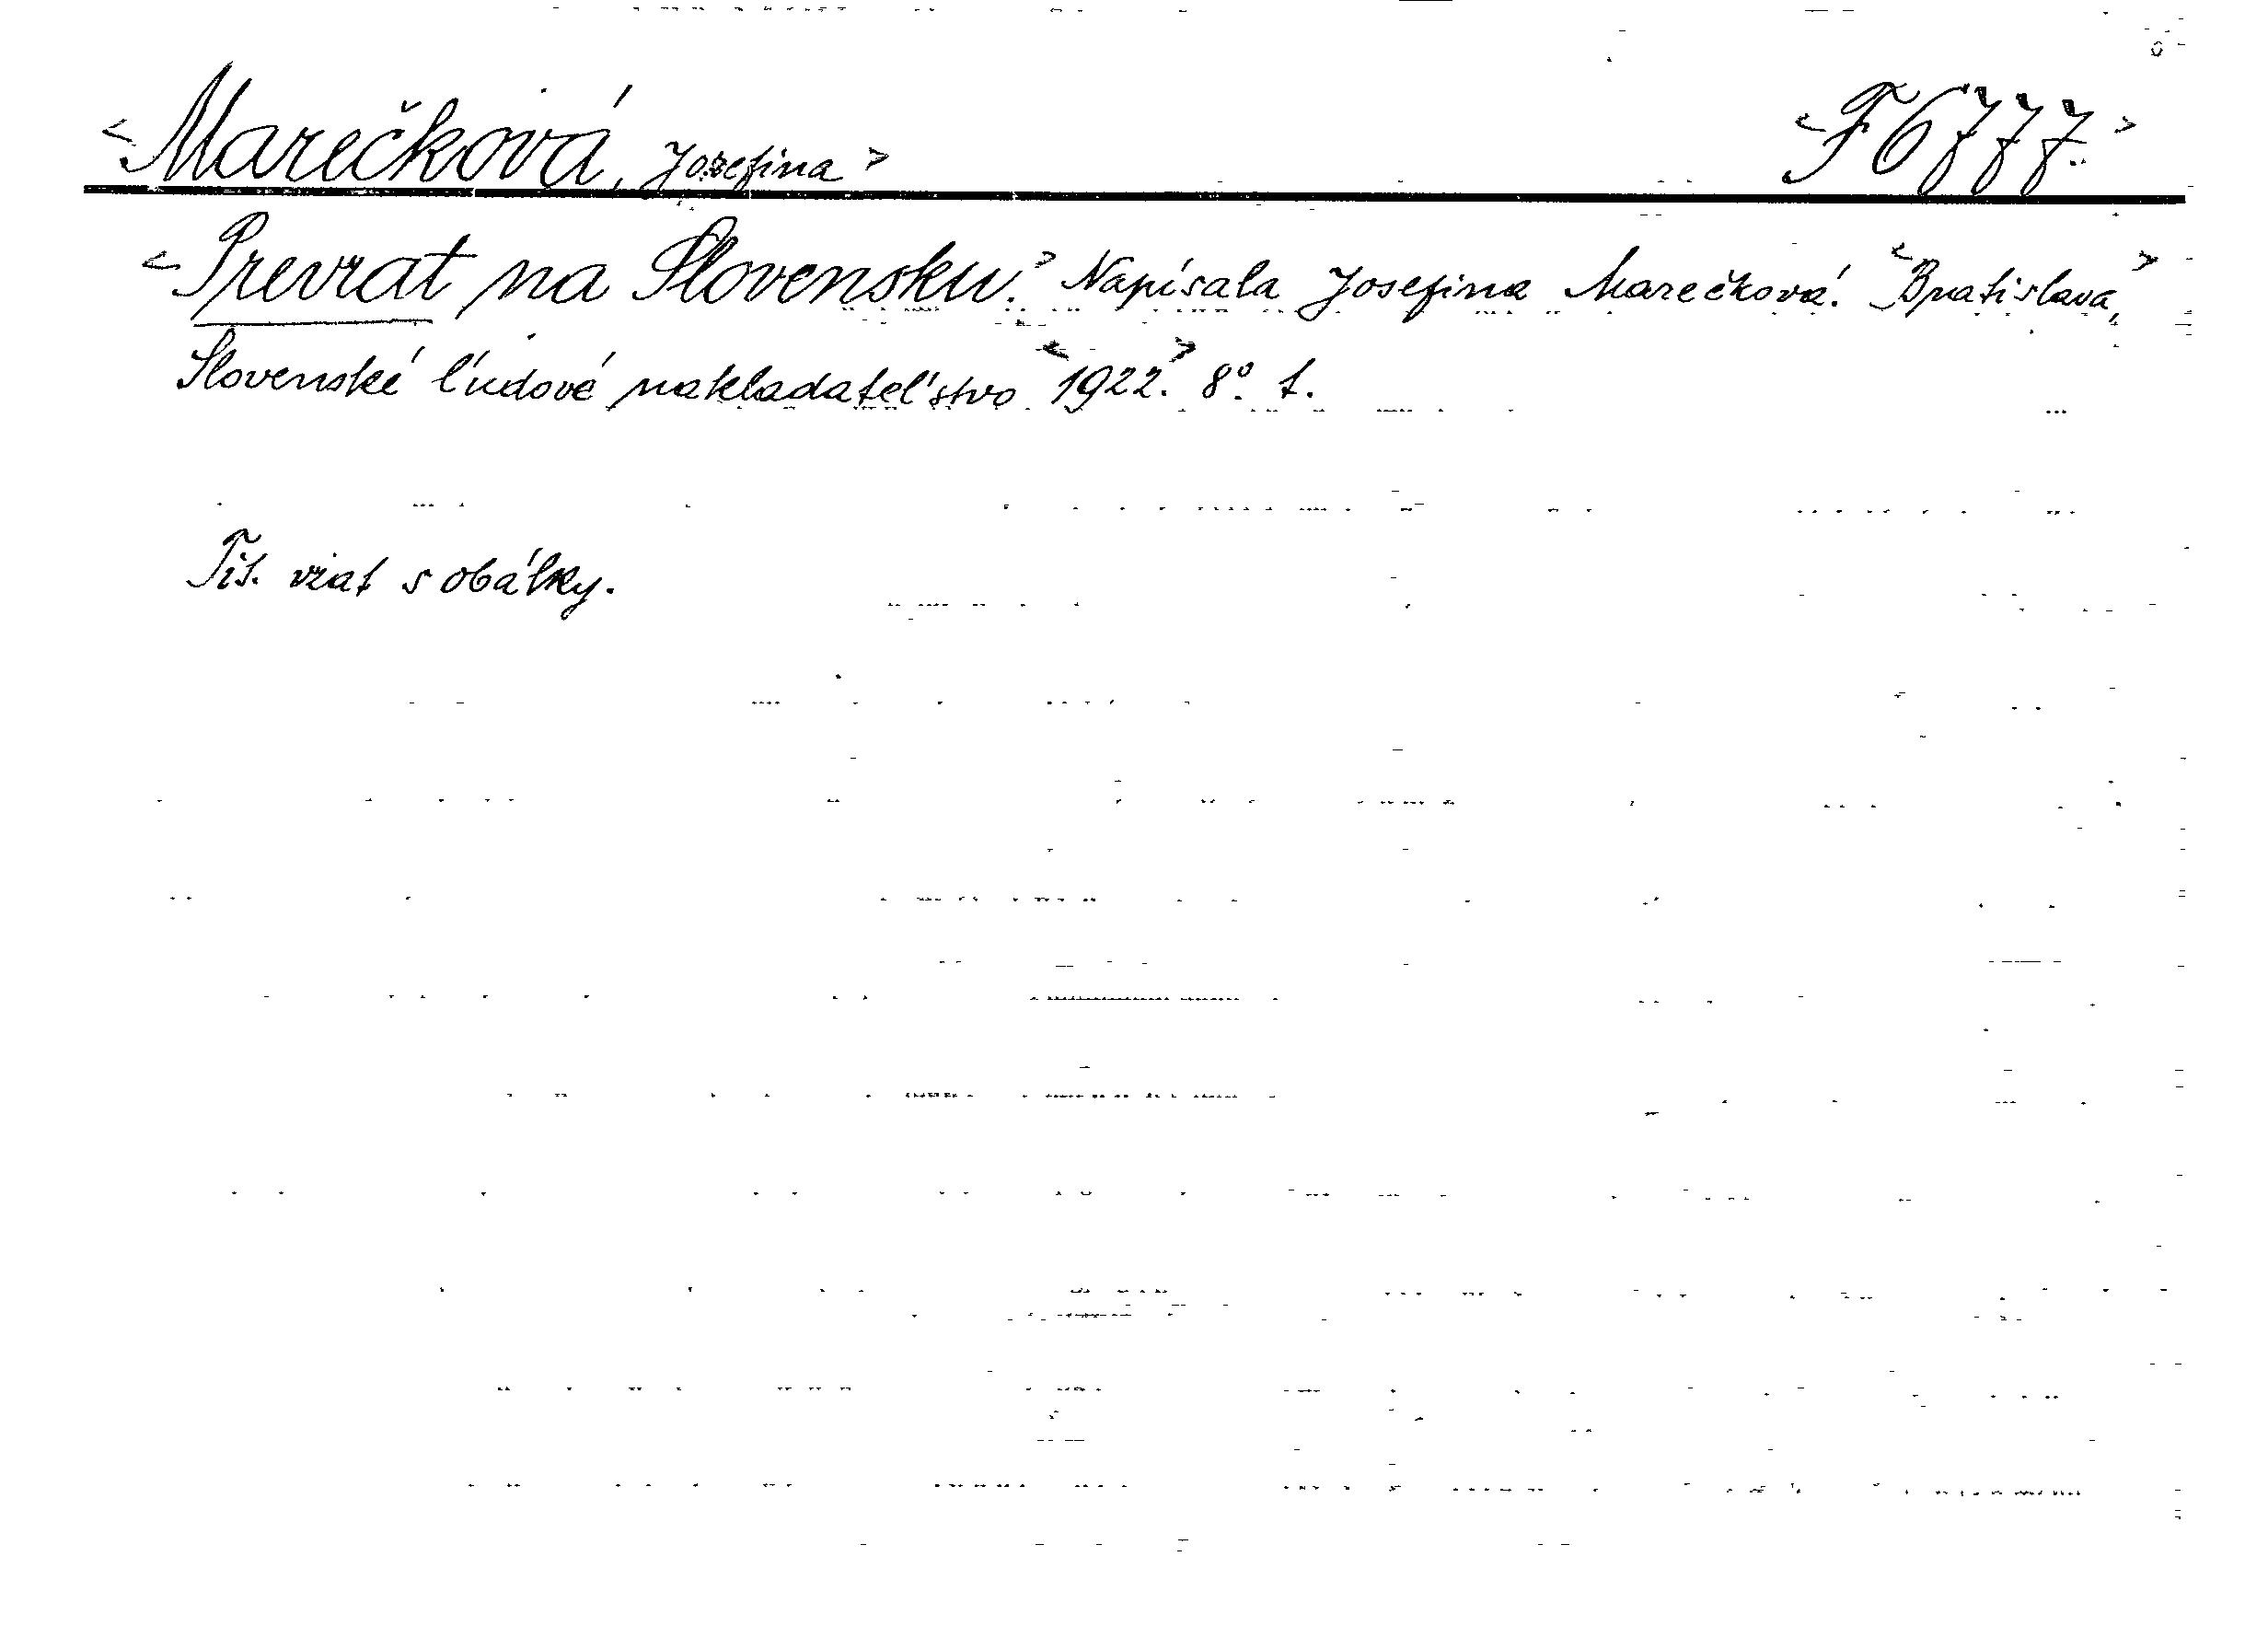 <Marečková, Jozefina> <F 6777.>
<Prevrat na Slovensku.> Napísala Josefina Marečková. <Bratislava,>
Slovenské ľudové nakladateľstvo <1922.> 8°. 1.
Tit. vzat s obálky.